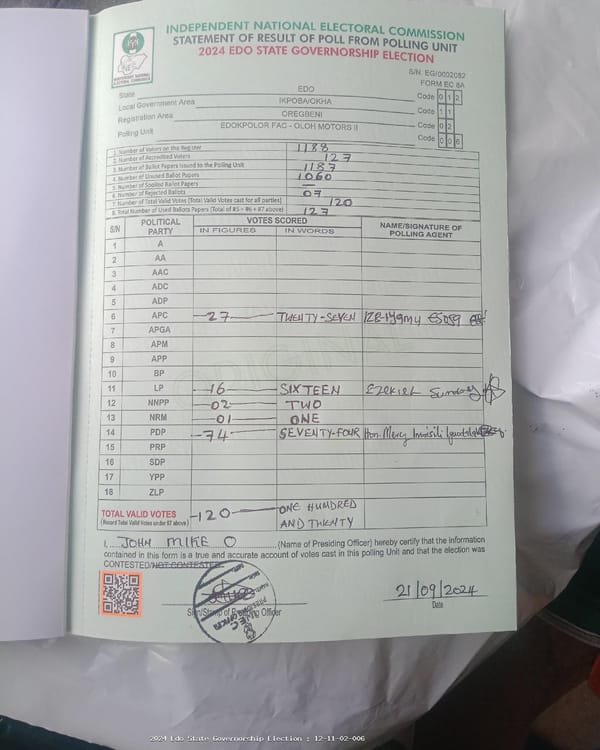 INDEPENDENT NATIONAL ELECTORAL COMMISSION
STATEMENT OF RESULT OF POLL FROM POLLING UNIT
2024 EDO STATE GOVERNORSHIP ELECTION
S/N. EG/0002082
FORM EC 8A
State EDO Code 0 1 2
Local Government Area IKPOBA/OKHA Code 1 1
Registration Area OREGBENI Code 0 2
Polling Unit EDOKPOLOR FAC - OLOH MOTORS II Code 0 0 6
1. Number of Voters on the Register 1188
2. Number of Accredited Voters 127
3. Number of Ballot Papers Issued to the Polling Unit 1187
4. Number of Unused Ballot Papers 1060
5. Number of Spoiled Ballot Papers —
6. Number of Rejected Ballots 07
7. Number of Total Valid Votes (Total Valid Votes cast for all parties) 120
8. Total Number of Used Ballots Papers (Total of #5 + #6 + #7 above) 127
S/N POLITICAL PARTY VOTES SCORED NAME/SIGNATURE OF POLLING AGENT
IN FIGURES IN WORDS
1 A
2 AA
3 AAC
4 ADC
5 ADP
6 APC 27 TWENTY-SEVEN
7 APGA
8 APM
9 APP
10 BP
11 LP 16 SIXTEEN Ezekiel Sunday
12 NNPP 02 TWO
13 NRM 01 ONE
14 PDP 74 SEVENTY-FOUR Hon. Mercy
15 PRP
16 SDP
17 YPP
18 ZLP
TOTAL VALID VOTES 120 ONE HUNDRED AND TWENTY
(Record Total Valid Votes under #7 above)
I, JOHN MIKE O (Name of Presiding Officer) hereby certify that the information
contained in this form is a true and accurate account of votes cast in this polling Unit and that the election was
CONTESTED/NOT CONTESTED
21/09/2024
Sign/Stamp of Presiding Officer Date
2024 Edo State Governorship Election : 12-11-02-006